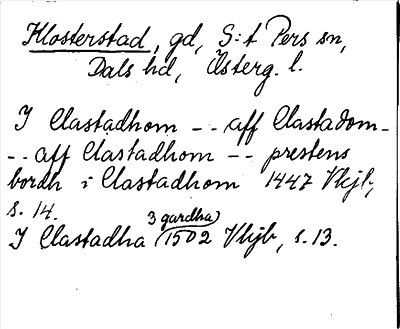 Klosterstad, gd, S:t Pers sn,
Dals hd, Österg. l.
I Clastadhom - - aff Clastadom -
- - aff Clastadhom - - prestens
bordh i Clastadhom 1447 Vkjb,
s. 14.
3 gardha
I Clastadha (1502 Vkjb, s. 13.